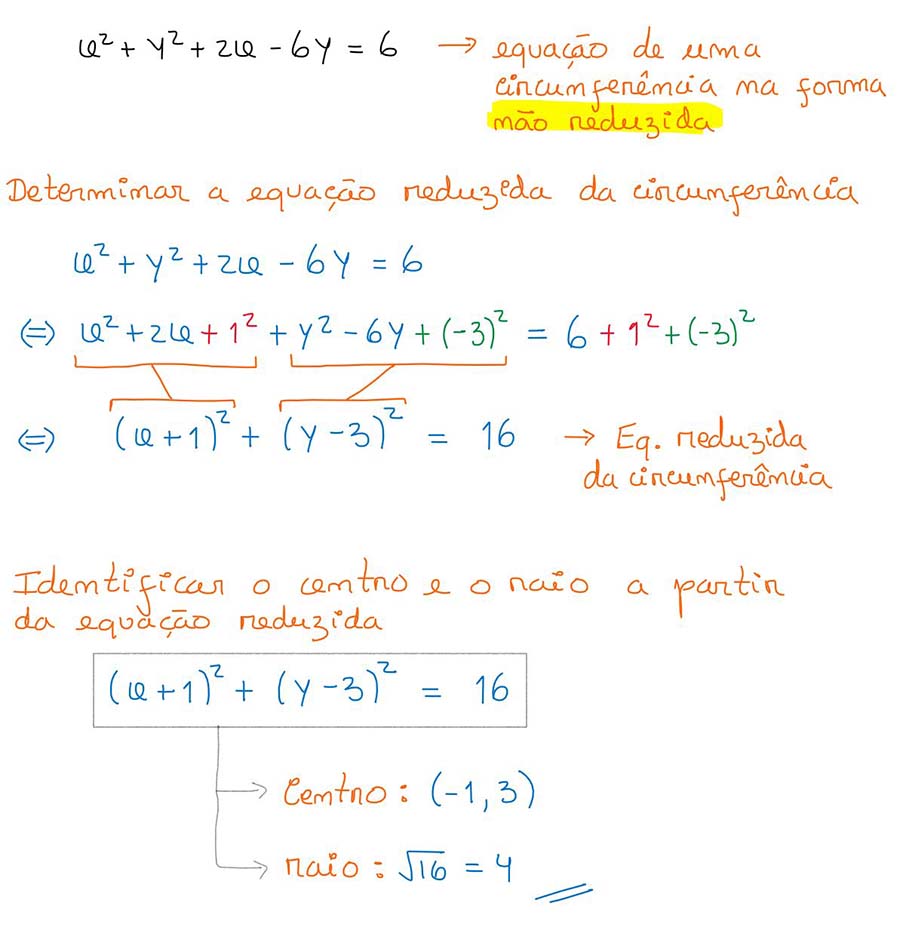 x² + y² + 2x - 6y = 6 → equação de uma
circunferência na forma
não reduzida
Determinar a equação reduzida da circunferência
x² + y² + 2x - 6y = 6
⇔ x² + 2x + 1² + y² - 6y + (-3)² = 6 + 1² + (-3)²
⇔ (x + 1)² + (y - 3)² = 16 → Eq. reduzida
da circunferência
Identificar o centro e o raio a partir
da equação reduzida
(x + 1)² + (y - 3)² = 16
Centro : (-1, 3)
raio : √16 = 4